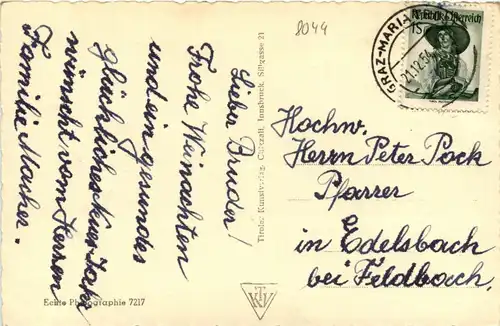 8044
Lieber Bruder!
Frohe Weinachten
und ein gesundes
Glückliches neues Jahr
wünscht vom Herzen
Familie Macher.
Echte Photographie 7217
Tiroler Kunstverlag, Chizzali, Innsbruck, Sillgasse 21
TKV
GRAZ-MARIA
21.12.54
Republik Österreich
1S
Hochw.
Herrn Peter Pack
Pfarrer
in Edelsbach
bei Feldbach.